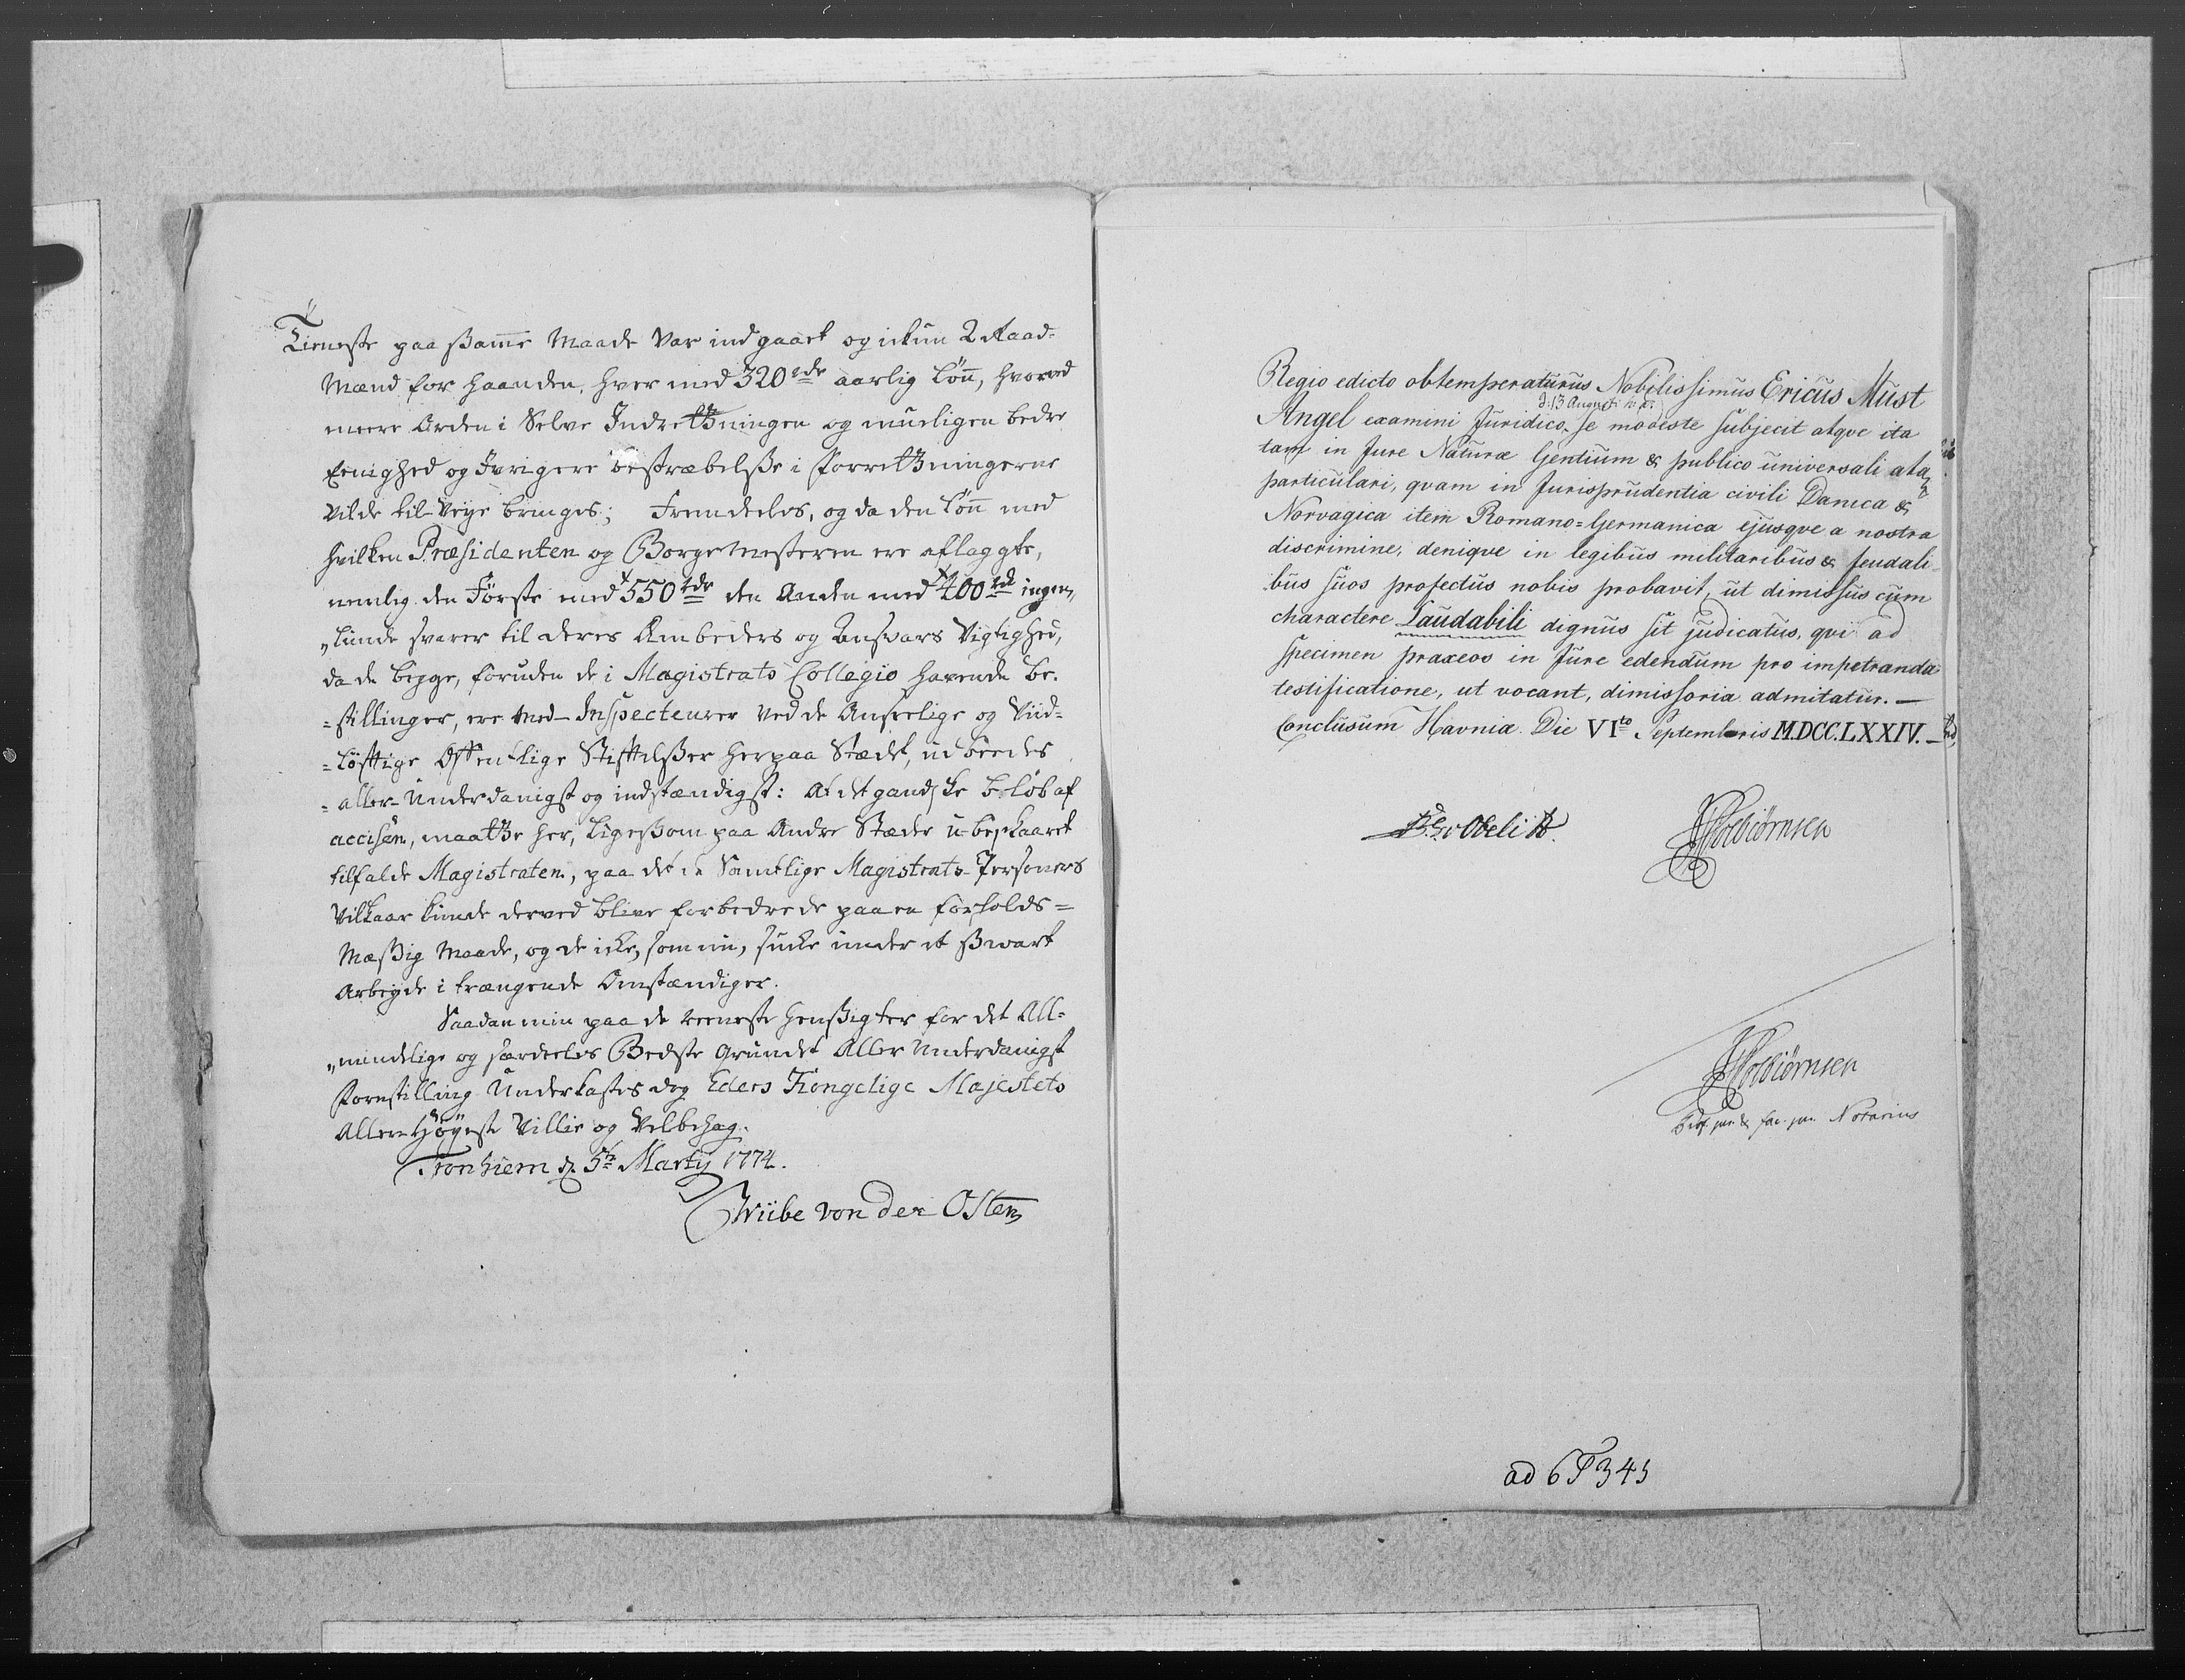 Tieneste paa samme Maade var indgaaet og ickun 2 Raad-
Mænd for haanden, hver med 320 rdr aarlig Lön, hvorved
meere Orden i Selve Indretningen og mueligen bedre
Eenighed og Ivrigere bestræbelse i Forretningerne
vilde til-Veye bringes; Fremdeeles, og da den Lön med
hvilken Præsidenten og Borgemesteren ere aflagte,
nemlig den Förste med 550 rdr den Anden med 400 rd ingen„
„lunde svarer til deres Embeders og Ansvars Vigtighed,
da de begge, foruden de i Magistrats Collegio havende be-
=stillinger, ere Med-Inspecteurer ved de Anseelige og Viid-
=löftige Offentlige Stiftelser her paa Stædet, udbeedes
=aller-Underdanigst og indstændigst: At det gandske belöb af
accisen, maatte her, ligesom paa Andre Stæder u-beskaaret
tilfalde Magistraten, paa det de Samtlige Magistrats-Personers
Vilkaar kunde derved blive forbedrede paa en forholds=
Mæssig Maade, og de icke, som nu, sucke under et swart
Arbeyde i trængende Omstændiger.
Saadan min paa de reeneste Hensigter for det All-
„mindelige og særdeeles Bedste Grundet Aller Underdanigst
Forestilling Underkastes dog Eders Kongelige Majestets
Aller-Höyeste Villie og Velbehag.
Tronhiem d. 5te Martij 1774.
Wiibe von der Osten
Regio edicto obtemperaturus Nobilissimus Ericus Must
d. 13 Augusti h. a.
Angel examini Juridico se modeste subjecit atqve ita
tam in Jure Naturæ Gentium & publico universali atq
particulari, qvam in Jurisprudentia civili Danica &
Norvagica item Romano=Germanica ejusqve a nostra
discrimine, deniqve in legibus militaribus & feudali-
bus suos profectus nobis probavit, ut dimissus cum
charactere Laudabili dignus sit judicatus, qvi ad
specimen praxeos in Jure edendum pro impetranda
testificatione, ut vocant, dimissoria admitatur. —
Conclusum Havniæ. Die VIto Septembris M.DCC.LXXIV. —
Obelitz.
Colbiørnsen
Colbiørnsen
Prof. jur. & fac. jur. Notarius
ad 6 P 345